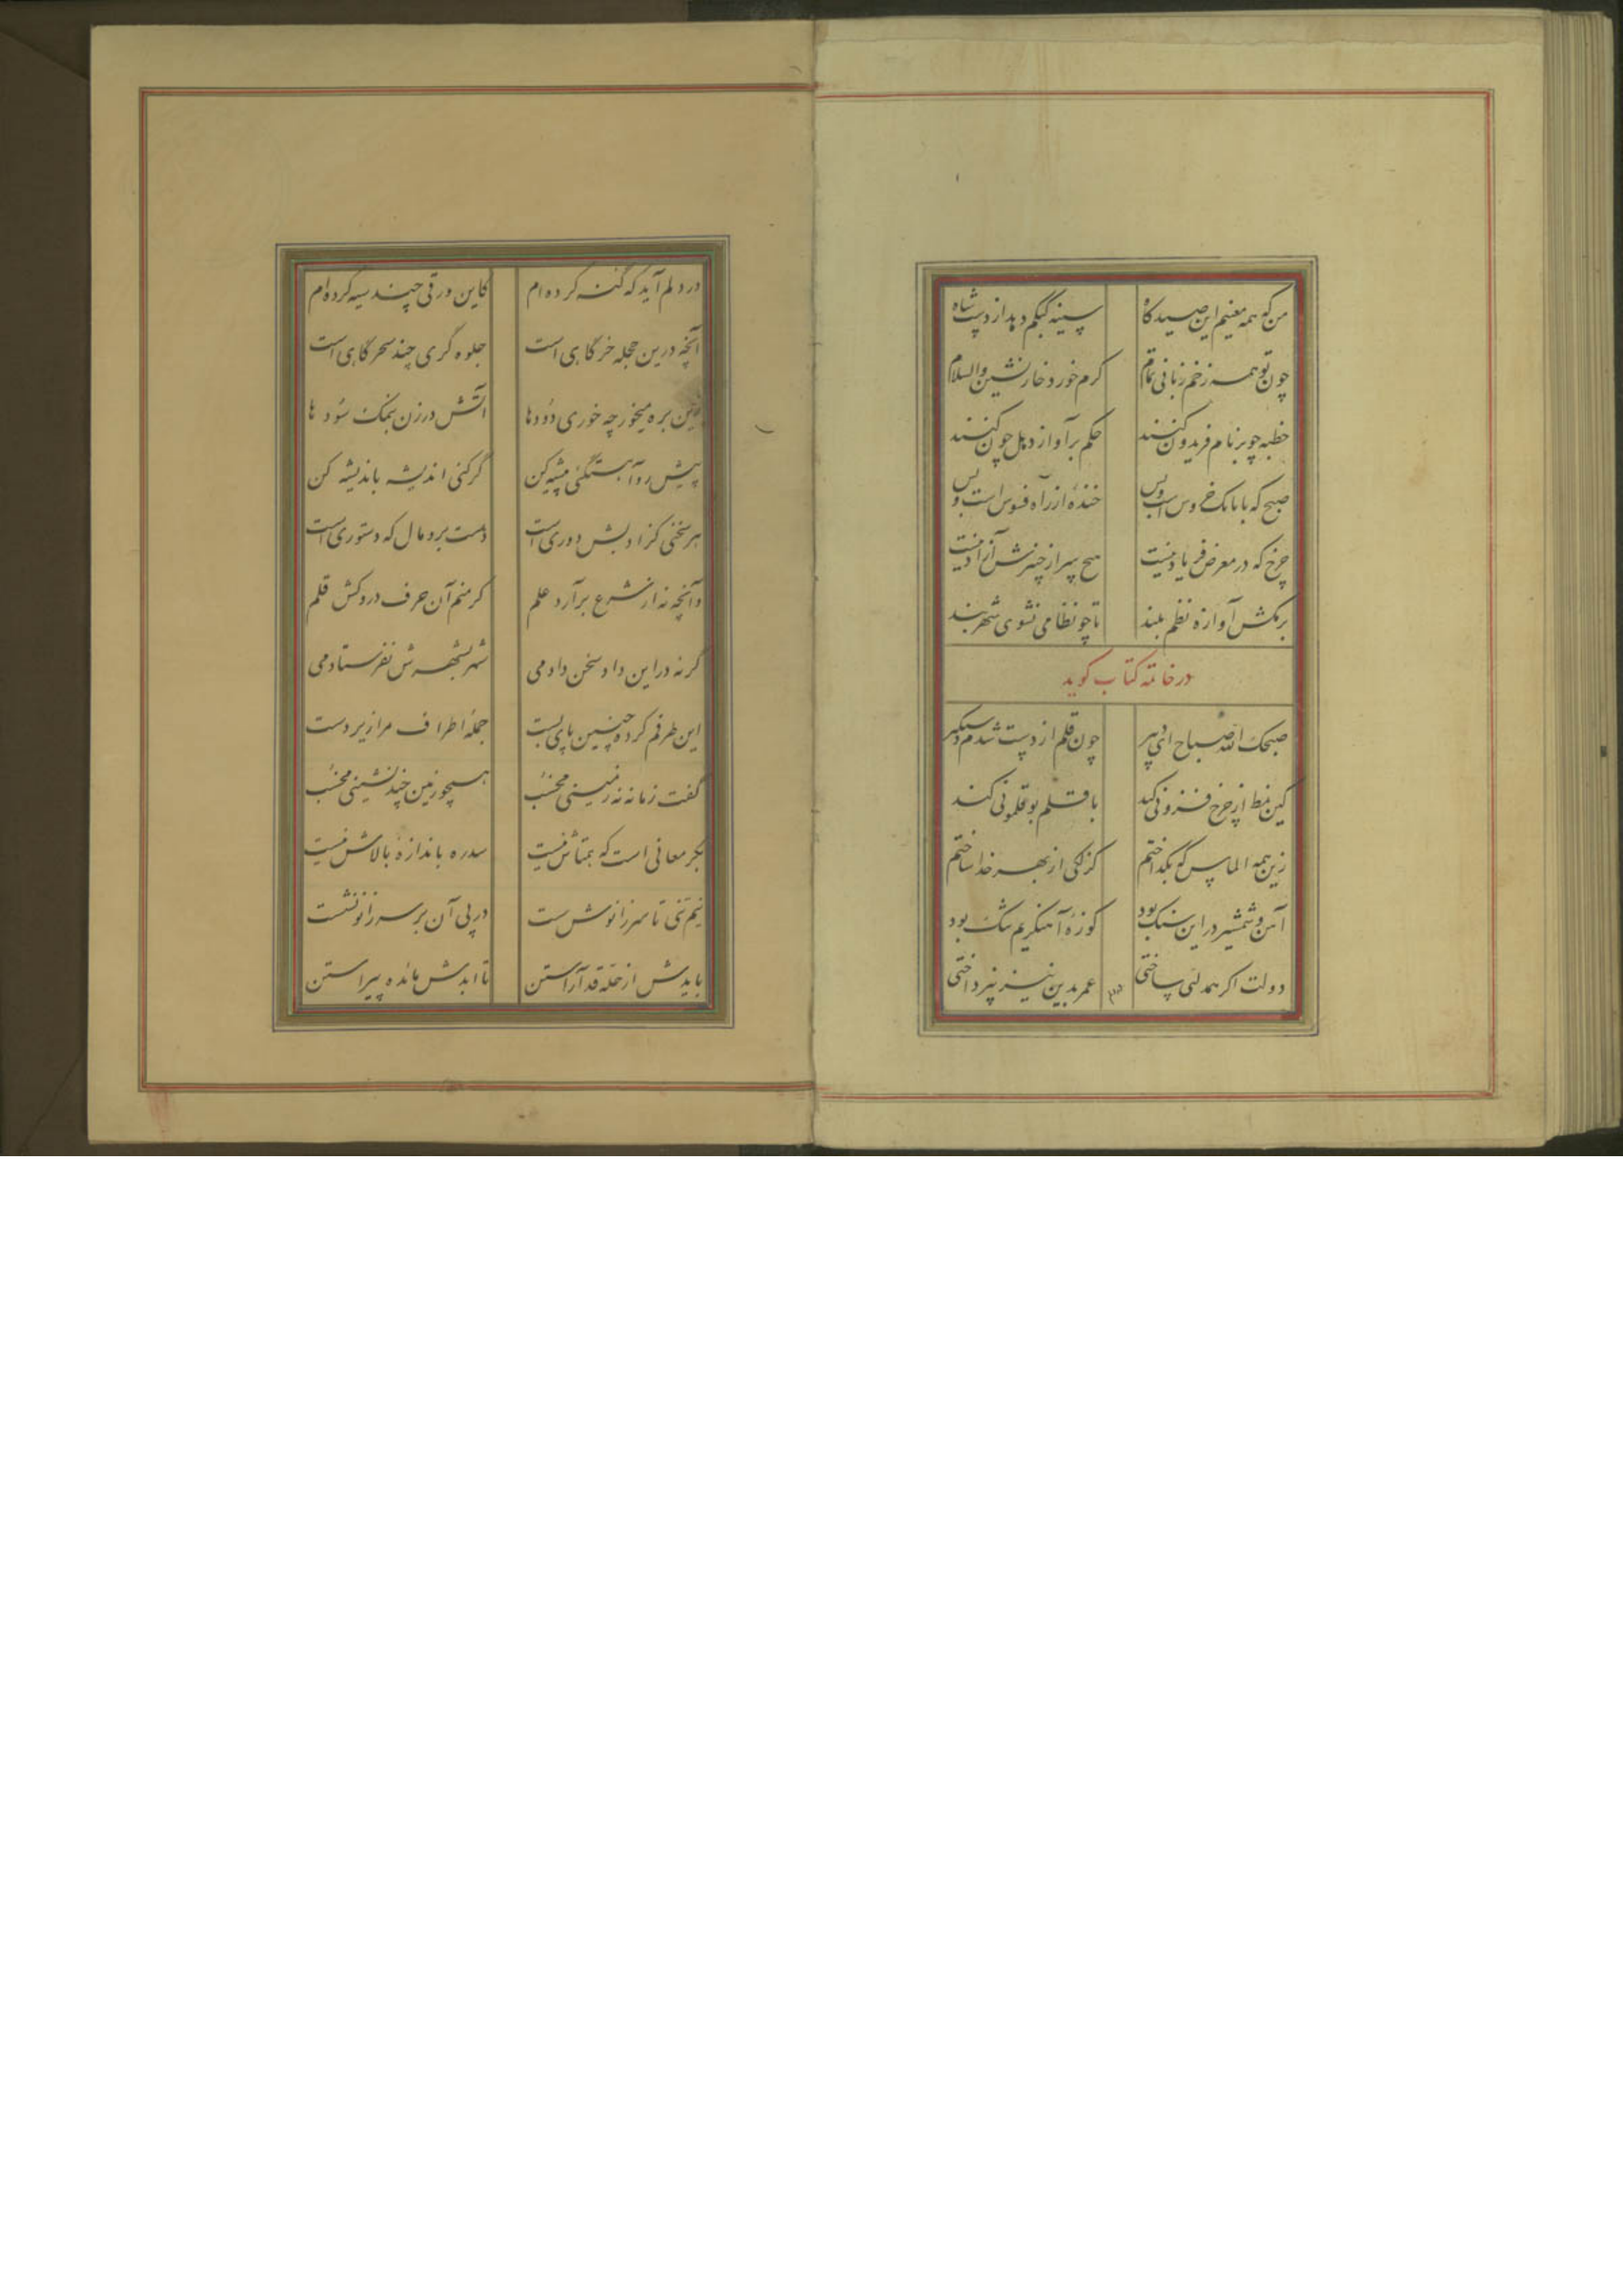 من که همه معنیم این صیدگاه سینه کبکم دهد از دست شاه
چون تو همه زخم زبانی تمام کرم خور و خار نشین والسلام
خطبه چو بر نام فریدون کنند حکم بر آواز دهل چون کنند
صبح که با بانک خروس است و بس خنده از راه فسوس است و بس
چرخ که در معرض فریاد نیست هیچ سر از چنبرش آزاد نیست
برمکش آوازه نظم بلند تا چو نظامی نشوی شهر بند
در خاتمه کتاب کوید
صبحک الله صباح ای دبیر چون قلم از دست شدم دستکیر
کین نمط از چرخ فزونی کند با قلم بوقلمونی کند
زین همه الماس که بکداختم کزلکی از بهر خدا ساختم
آهن و شمشیر در این سنک بود کوزه آهنکریم تنک بود
دولت اکر همدلی ساختی عمر بدین نیز نپرداختی
در دلم آید که کنه کرده ام کاین ورقی چند سیه کرده ام
آنچه درین حجله خرکاهی است جلوه کری چند سحرکاهی است
زین بره میخور چه خوری دودها آتش در زن بنمک سودها
پیش رو آهستکئی پیشه کن کر کنی اندیشه باندیشه کن
هر سخنی کز ادبش دوری است دست برو مال که دستوری است
و آنچه نه از شرع برآرد علم کر منم آن حرف درو کش قلم
کر نه در این داد سخن دادمی شهر بشهرش نفرستادمی
این طرفم کرد چنین پای بست جمله اطراف مرا زیر دست
کفت زمانه نه زمینی مخسب همچو زمین چند نشینی مخسب
بکر معانی است که همتاش نیست سدره باندازه بالاش نیست
نیم تنی تا سر زانوش هست در پی آن بر سر زانو نشست
بایدش از حله قد آراستن تا ابدش مانده پیراستن